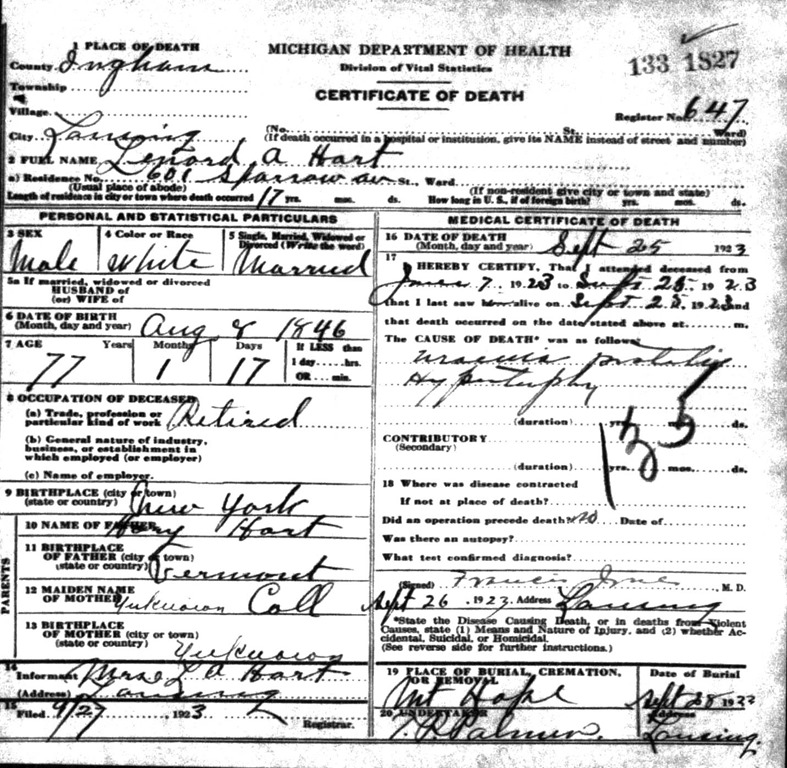 MICHIGAN DEPARTMENT OF HEALTH
Division of Vital Statistics
CERTIFICATE OF DEATH
133 1827
Register No. 647
1 PLACE OF DEATH
County Ingham
Township
Village
City Lansing (No. St. Ward)
(If death occurred in a hospital or institution, give its NAME instead of street and number)
2 FULL NAME Lenord A Hart
a) Residence No. 601 Sparrow av St., Ward.
(Usual place of abode) (If non-resident give city or town and state)
Length of residence in city or town where death occurred 17 yrs. mos. ds. How long in U. S., if of foreign birth? yrs. mos. ds.
PERSONAL AND STATISTICAL PARTICULARS
3 SEX 4 Color or Race 5 Single, Married, Widowed or
Divorced (Write the word)
Male White Married
5a If married, widowed or divorced
HUSBAND of
(or) WIFE of
6 DATE OF BIRTH
(Month, day and year) Aug 8 1846
7 AGE Years Months Days If LESS than
1 day......hrs.
OR ... min.
77 1 17
8 OCCUPATION OF DECEASED
(a) Trade, profession or
particular kind of work Retired
(b) General nature of industry,
business, or establishment in
which employed (or employer)
(c) Name of employer.
9 BIRTHPLACE (city or town)
(state or country) New York
PARENTS
10 NAME OF FATHER Hart
11 BIRTHPLACE
OF FATHER (city or town)
(state or country) Vermont
12 MAIDEN NAME
OF MOTHER Unknown Call
13 BIRTHPLACE
OF MOTHER (city or town)
(state or country) Unknown
14
Informant Mrs L A Hart
(Address) Lansing
15
Filed 9/27, 1923 Registrar.
MEDICAL CERTIFICATE OF DEATH
16 DATE OF DEATH
(Month, day and year) Sept 25 1923
17
I HEREBY CERTIFY, That I attended deceased from
7, 1923 to Sept 25, 1923
that I last saw him alive on Sept 25, 1923
and that death occurred on the date stated above at m.
The CAUSE OF DEATH* was as follows:
Uraemia
Hypertrophy
(duration) yrs. mos. ds.
CONTRIBUTORY
(Secondary)
(duration) yrs. mos. ds.
135
18 Where was disease contracted
If not at place of death?
Did an operation precede death? no Date of
Was there an autopsy?
What test confirmed diagnosis?
(Signed) Francis M. D.
Sept 26, 1923 Address Lansing
*State the Disease Causing Death, or in deaths from Violent
Causes, state (1) Means and Nature of Injury, and (2) whether Ac-
cidental, Suicidal, or Homicidal.
(See reverse side for further instructions.)
19 PLACE OF BURIAL, CREMATION,
OR REMOVAL Date of Burial
Mt Hope Sept 28 1923
20 UNDERTAKER Address
Palmer. Lansing.